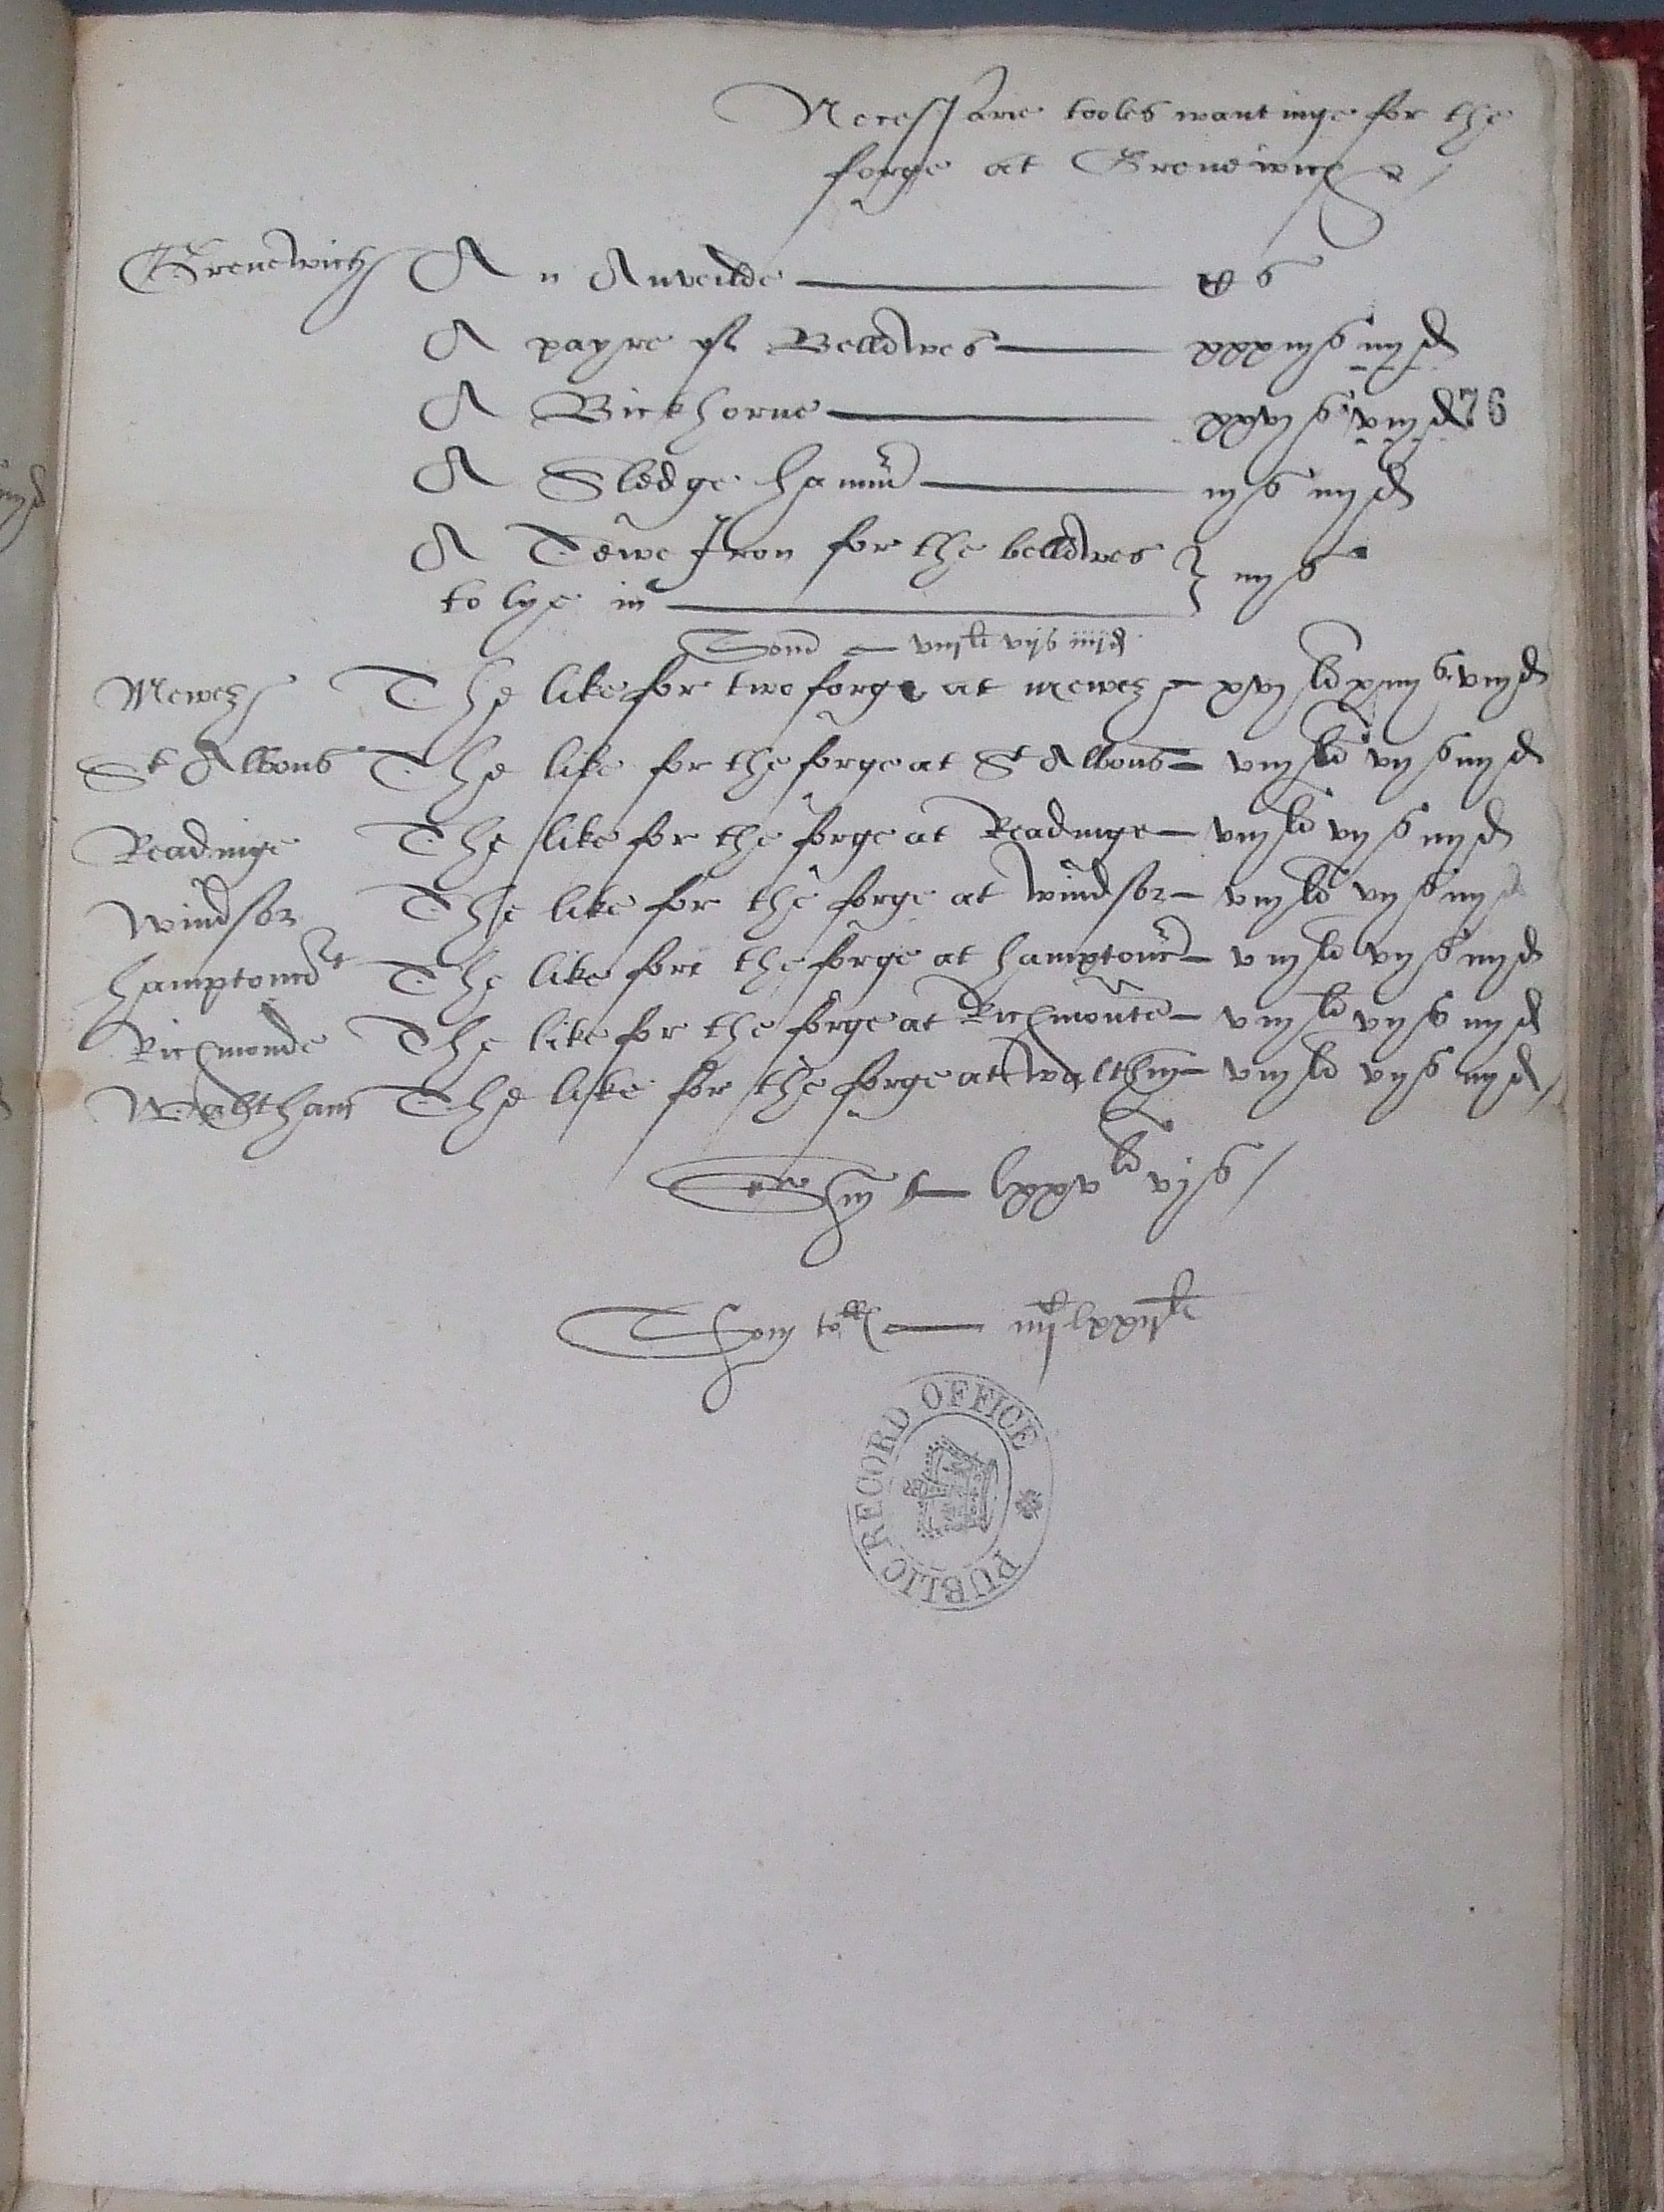 Necessarie tooles wantinge for the
forge at Grenewich
Grenewich An Anveilde — C s
A payre of Bellowes — xxxiijs iiijd
A Bickhorne — xxvjs viijd 76
A Sledge hammr — iijs iiijd
A Tewe Iron for the bellowes } iiijs
to lye in —
Som — viijli vijs iiijd
Mewes The like for two forges at mewes — xvjli xiiijs viijd
St Albons The like for the forge at St Albons — viijli vijs iiijd
Readinge The like for the forge at Readinge — viijli vijs iiijd
Windsor The like for the forge at windsor — viijli vijs iiijd
hamptoncrt The like fore the forge at hamptonc — viijli vijs iiijd
Richmonde The like for the forge at Richmonte — viijli vijs iiijd
Waltham The like for the forge at waltham — viijli vijs iiijd
Sm — lxxvli vjs
Som toll —
PUBLIC RECORD OFFICE